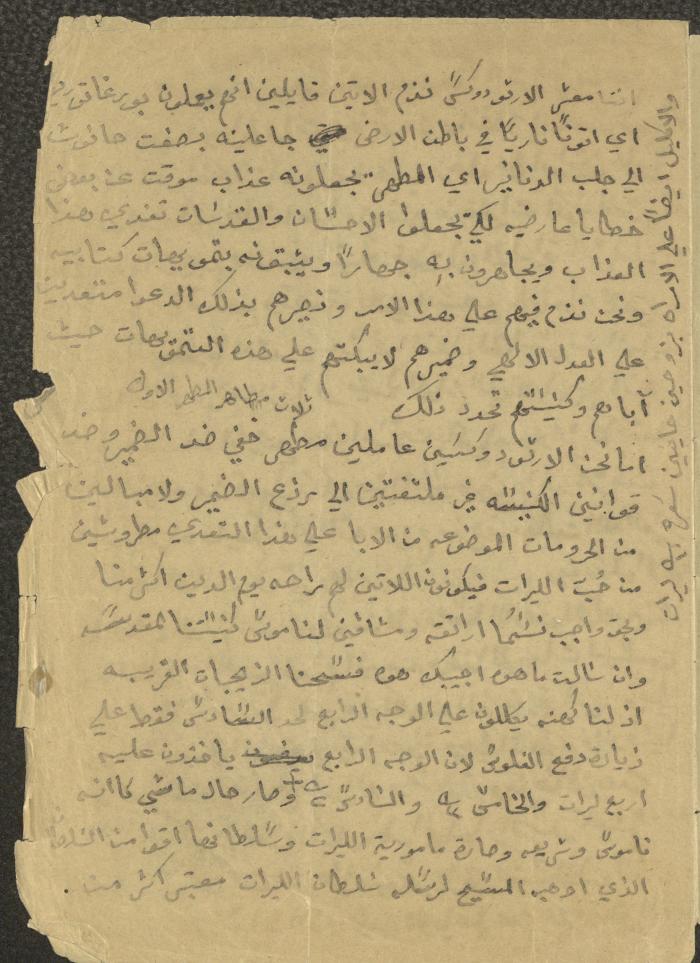 اننا معشر الارتودوكس نذم الاتين قايلين انهم يعملون بورغاتوريو
اي اتونًا ناريًا في باطن الارض جاعلينه بصفت حانوت
الي جلب الدنانير اي المطهر يجعلونه عذاب موقت عن بعض
خطايا عارضيه لكي يجعلوا الاحسان والقدسات تفدي هذا
العذاب ويجاهرون به جهارًا ويثبتونه بتمويهات كتابيه
ونحن نذم فيهم علي هذا الامر ونعيرهم بذلك الدعوا متعديين
علي العدل الالهي وضميرهم لا يبكتهم علي هذه التمويهات حيث
آباهم وكنيستهم تحدد ذلك
ثلاث مطاهر المطهر الاول
اما نحن الارتودوكسيين عاملين مطهر خفي ضد الضمير وضد
قوانين الكنيسه غير ملتفتين الي ردع الضمير ولا مبالين
من الحرومات الموضوعه من الابا علي هذا التعدي مطروشين
من حُب الليرات فيكونون اللاتين لهم راحه يوم الدين اكثر منا
وبحق واجب نسُما اراتقه ومشاقين لناموس كنيستنا المقدسه
وان سالت ما هوه اجيبك هوه فسحنا الزيجات القريبه
اذ لنا كهنه يكللون علي الوجه الرابع لحد السادس فقط علي
زيادة دفع الفلوس لان الوجه الرابع ياخذون عليه
اربع ليرات والخامس والسادس وصار حال ماشي كانه
ناموس وشريعه وصارة مامورية الليرات وسلطانها اقوا من السلطان
الذي اوهبه المسيح لرسله سلطان الليرات معتبر اكثر منه.
والاكليل ايضًا علي الامراه بزوجين ليرات